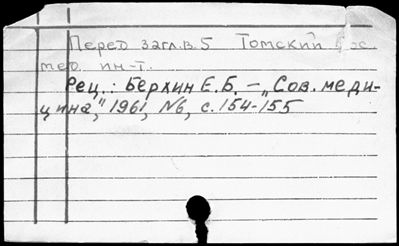 Перед загл. в. 5 Томский гос.
мед. ин-т.
Рец.: Берхин Е.Б. – „Сов. меди-
цина", 1961, N6, с. 154-155